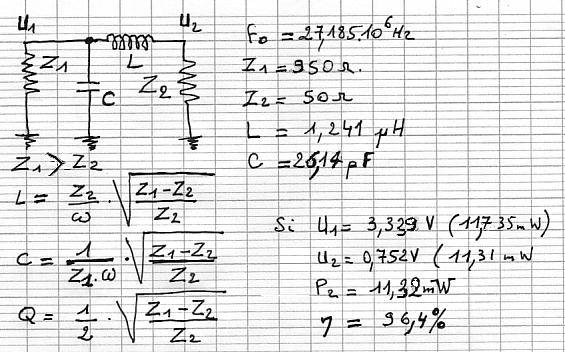 U1 U2
Z1 L Z2 C
Z1 > Z2
L = Z2/ω · √((Z1-Z2)/Z2)
C = 1/(Z1·ω) · √((Z1-Z2)/Z2)
Q = 1/2 · √((Z1-Z2)/Z2)
F0 = 27,185.10^6 Hz
Z1 = 950 Ω.
Z2 = 50 Ω
L = 1,241 μH
C = 26,14 pF
Si U1 = 3,339 V (11,735 mW)
U2 = 0,752V (11,31 mW
P2 = 11,32 mW
η = 96,4%